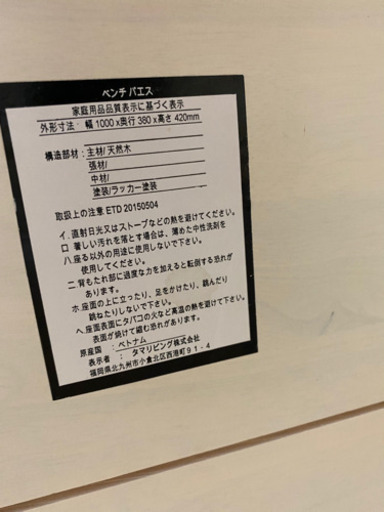 ベンチ パエス
家庭用品品質表示に基づく表示
外形寸法 : 幅 1000 x奥行 380 x高さ 420mm
構造部材 : 主材/天然木
張材/
中材/
塗装/ラッカー塗装
取扱上の注意 ETD 20150504
イ. 直射日光又はストーブなどの熱を避けてください。
ロ 著しい汚れを落とす場合は、薄めた中性洗剤を
使用してください。
ハ. 座る以外の用途に使用しないで下さい。
ニ. 背もたれ部に過度な力を加えると転倒する恐れが
あります。
ホ. 座面の上に立ったり、足をかけたり、跳んだり
跳ねたりしないで下さい。
ヘ. 座面表面にタバコの火など高温の熱を避けて下さい。
表面が焼けて縮む恐れがあります。
原産国 : ベトナム
表示者 : タマリビング株式会社
福岡県北九州市小倉北区西港町９１-４